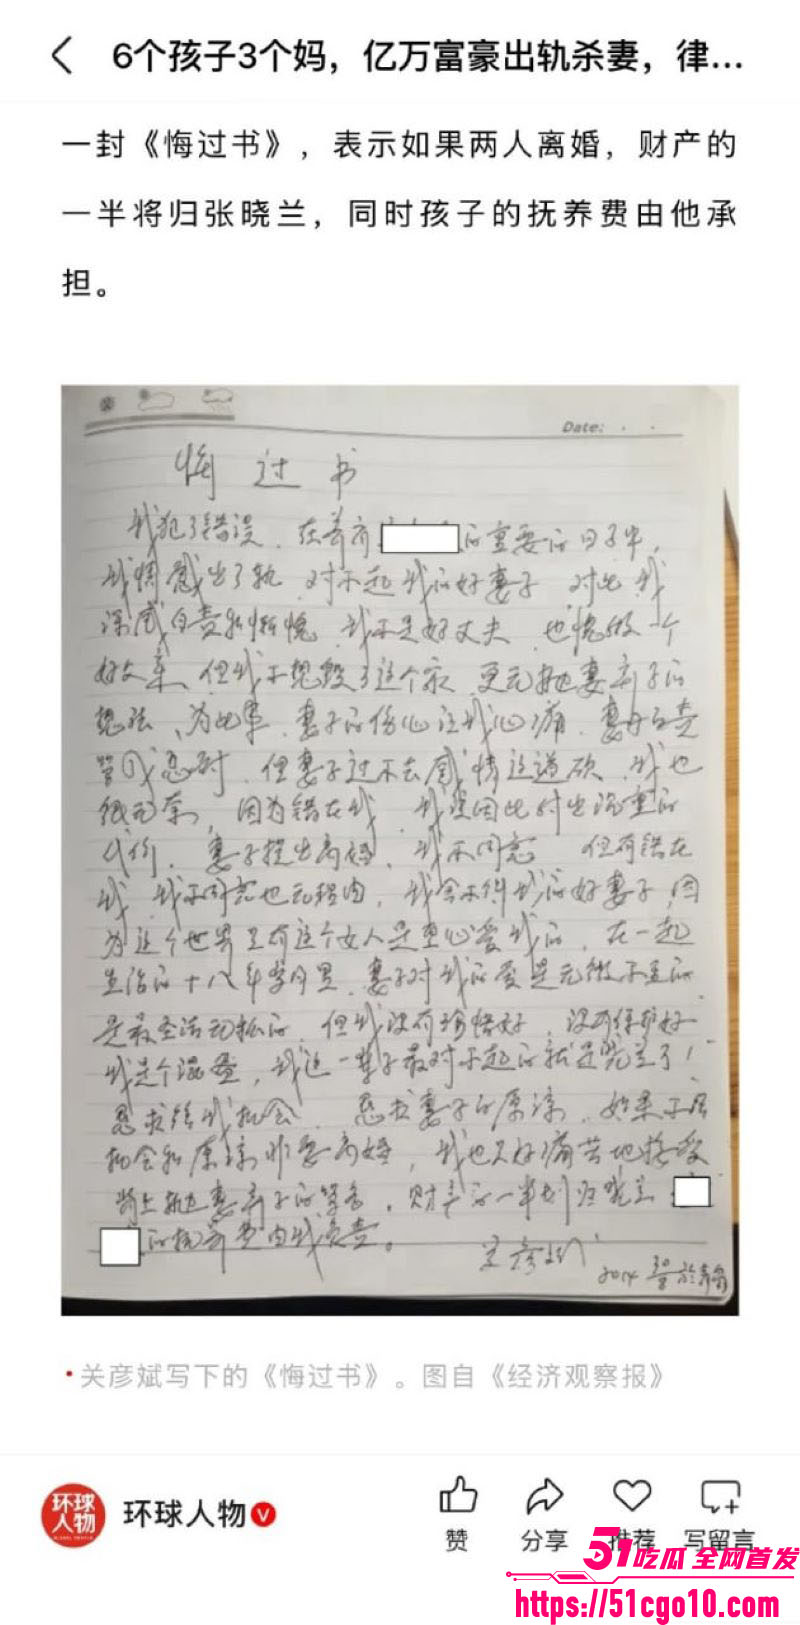 6个孩子3个妈，亿万富豪出轨杀妻，律...
一封《悔过书》，表示如果两人离婚，财产的
一半将归张晓兰，同时孩子的抚养费由他承
担。
Date:
悔过书
我犯了错误，在养育 的重要的日子里，
我情感出了轨，对不起我的好妻子，对此我
深感自责和惭愧，我不是好丈夫，也愧做一个
好父亲，但我不想毁了这个家，更无抛妻弃子的
想法，为此事，妻子的伤心让我心痛，妻
但妻子过不去感情这道砍，我也
很无奈，因为错在我，我要因此付出沉重的
代价，妻子提出离婚，我不同意，但有错在
我，我不同意也无理由，我舍不得我的好妻子，因
为这个世界里有这个女人是真心爱我的，在一起
生活的十八年岁月里，妻子对我的爱是无微不至的
是最圣洁无私的，但我没有珍惜好，没有保护好
我是个混蛋，我这一辈子最对不起的就是晓兰了！
恳求给我机会，恳求妻子的原谅，如果不给
机会和原谅非要离婚，我也只好痛苦地接受
背上抛妻弃子的罪名，财产的一半划归晓兰
的抚养费由我负责。
关彦斌
2014
•关彦斌写下的《悔过书》。图自《经济观察报》
环球人物
环球人物
赞 分享 推荐 写留言
51吃瓜 全网首发
https://51cgo10.com